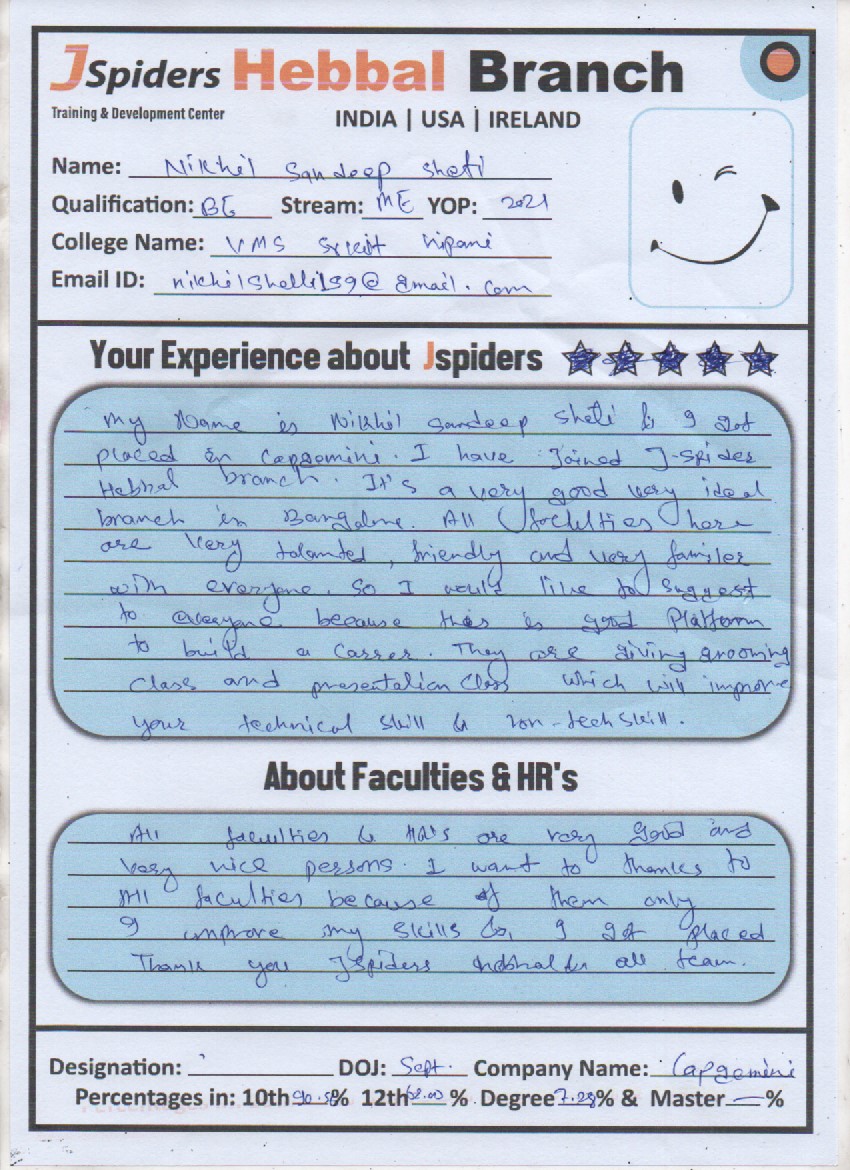 JSpiders Hebbal Branch
Training & Development Center
INDIA | USA | IRELAND
Name: Nikhil Sandeep Sheti
Qualification: BE Stream: ME YOP: 2021
College Name: VMS Nipani
Email ID: @gmail.com
Your Experience about Jspiders
My Name is Nikhil Sandeep Sheti & I got
placed in Capgemini. I have Joined J-spider
Hebbal branch. It's a very good very ideal
branch in Bangalore. All faculties here
are very talanted, friendly and very familer
with everyone. So I would like to suggest
to everyone because this is good Platform
to build a Carrer. They are giving grooming
Class and presentation Class which will improve
your technical skill & non-tech skill.
About Faculties & HR's
All faculties & HR's are very good and
very nice persons. I want to thanks to
All faculties because of them only
I improve my skills & I got placed
Thank you Jspiders Hebbal & all team.
Designation: DOJ: Sept. Company Name: Capgemini
Percentages in: 10th % 12th % Degree 7.28% & Master — %